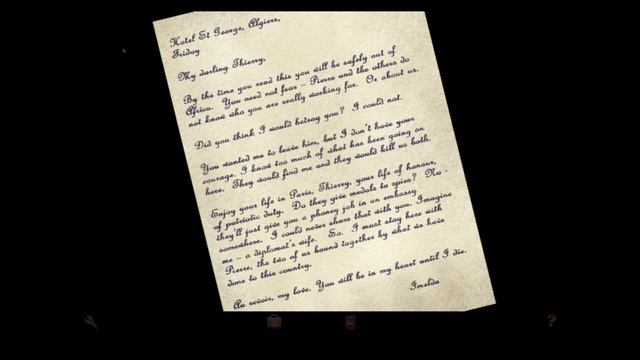 Hotel St George, Algiers,
Friday
My darling Thierry,
By the time you read this you will be safely out of
Africa. You need not fear - Pierre and the others do
not know who you are really working for. Or about us.
Did you think I would betray you? I could not.
You wanted me to leave him, but I don't have your
courage. I know too much of what has been going on
here. They would find me and they would kill us both.
Enjoy your life in Paris, Thierry, your life of honour,
of patriotic duty. Do they give medals to spies? No -
they'll just give you a phoney job in an embassy
somewhere. I could never share that with you. Imagine
me - a diplomat's wife. So. I must stay here with
Pierre, the two of us bound together by what we have
done to this country.
Au revoir, my love. You will be in my heart until I die.
Imelda
?